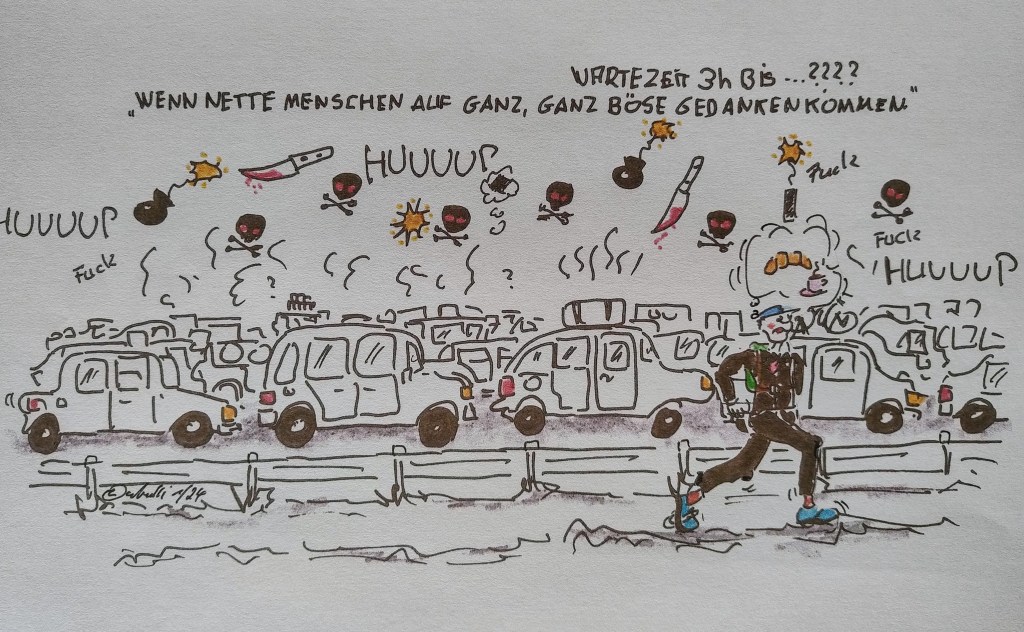 WARTEZEIT 3h Bis ...????
„WENN NETTE MENSCHEN AUF GANZ, GANZ BÖSE GEDANKEN KOMMEN“
HUUUUP
Fuck
HUUUUP
Fuck
Fuck
HUUUUP
?
?
1/24